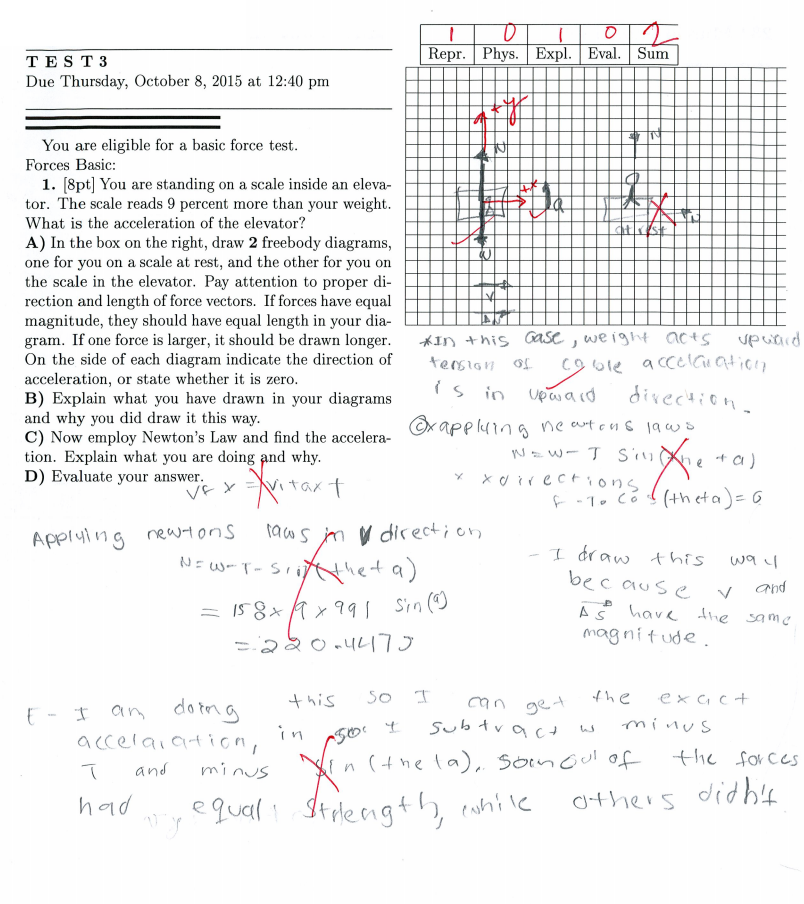 1 0 1 0 2
Repr. Phys. Expl. Eval. Sum
T E S T 3
Due Thursday, October 8, 2015 at 12:40 pm
You are eligible for a basic force test.
Forces Basic:
1. [8pt] You are standing on a scale inside an eleva-
tor. The scale reads 9 percent more than your weight.
What is the acceleration of the elevator?
A) In the box on the right, draw 2 freebody diagrams,
one for you on a scale at rest, and the other for you on
the scale in the elevator. Pay attention to proper di-
rection and length of force vectors. If forces have equal
magnitude, they should have equal length in your dia-
gram. If one force is larger, it should be drawn longer.
On the side of each diagram indicate the direction of
acceleration, or state whether it is zero.
B) Explain what you have drawn in your diagrams
and why you did draw it this way.
C) Now employ Newton's Law and find the accelera-
tion. Explain what you are doing and why.
D) Evaluate your answer.
+y
N
+x
a
W
V
N
at rest
*In this case, weight acts upward
tension of cable accelaration
is in upward direction.
applying newtons laws
N=W-T Sin(the ta)
x xdirections
(theta)=
Vf x = Vi tax t
Applying newtons laws in V direction
N=W-T-Sin(theta)
= 158x9x991 Sin(a)
=220.4417J
- I draw this way
because v and
ΔS have the same
magnitude.
E - I am doing this so I can get the exact
accelaration, in I subtract w minus
T and minus Sin(theta). of the forces
had equal strength, while others didn't